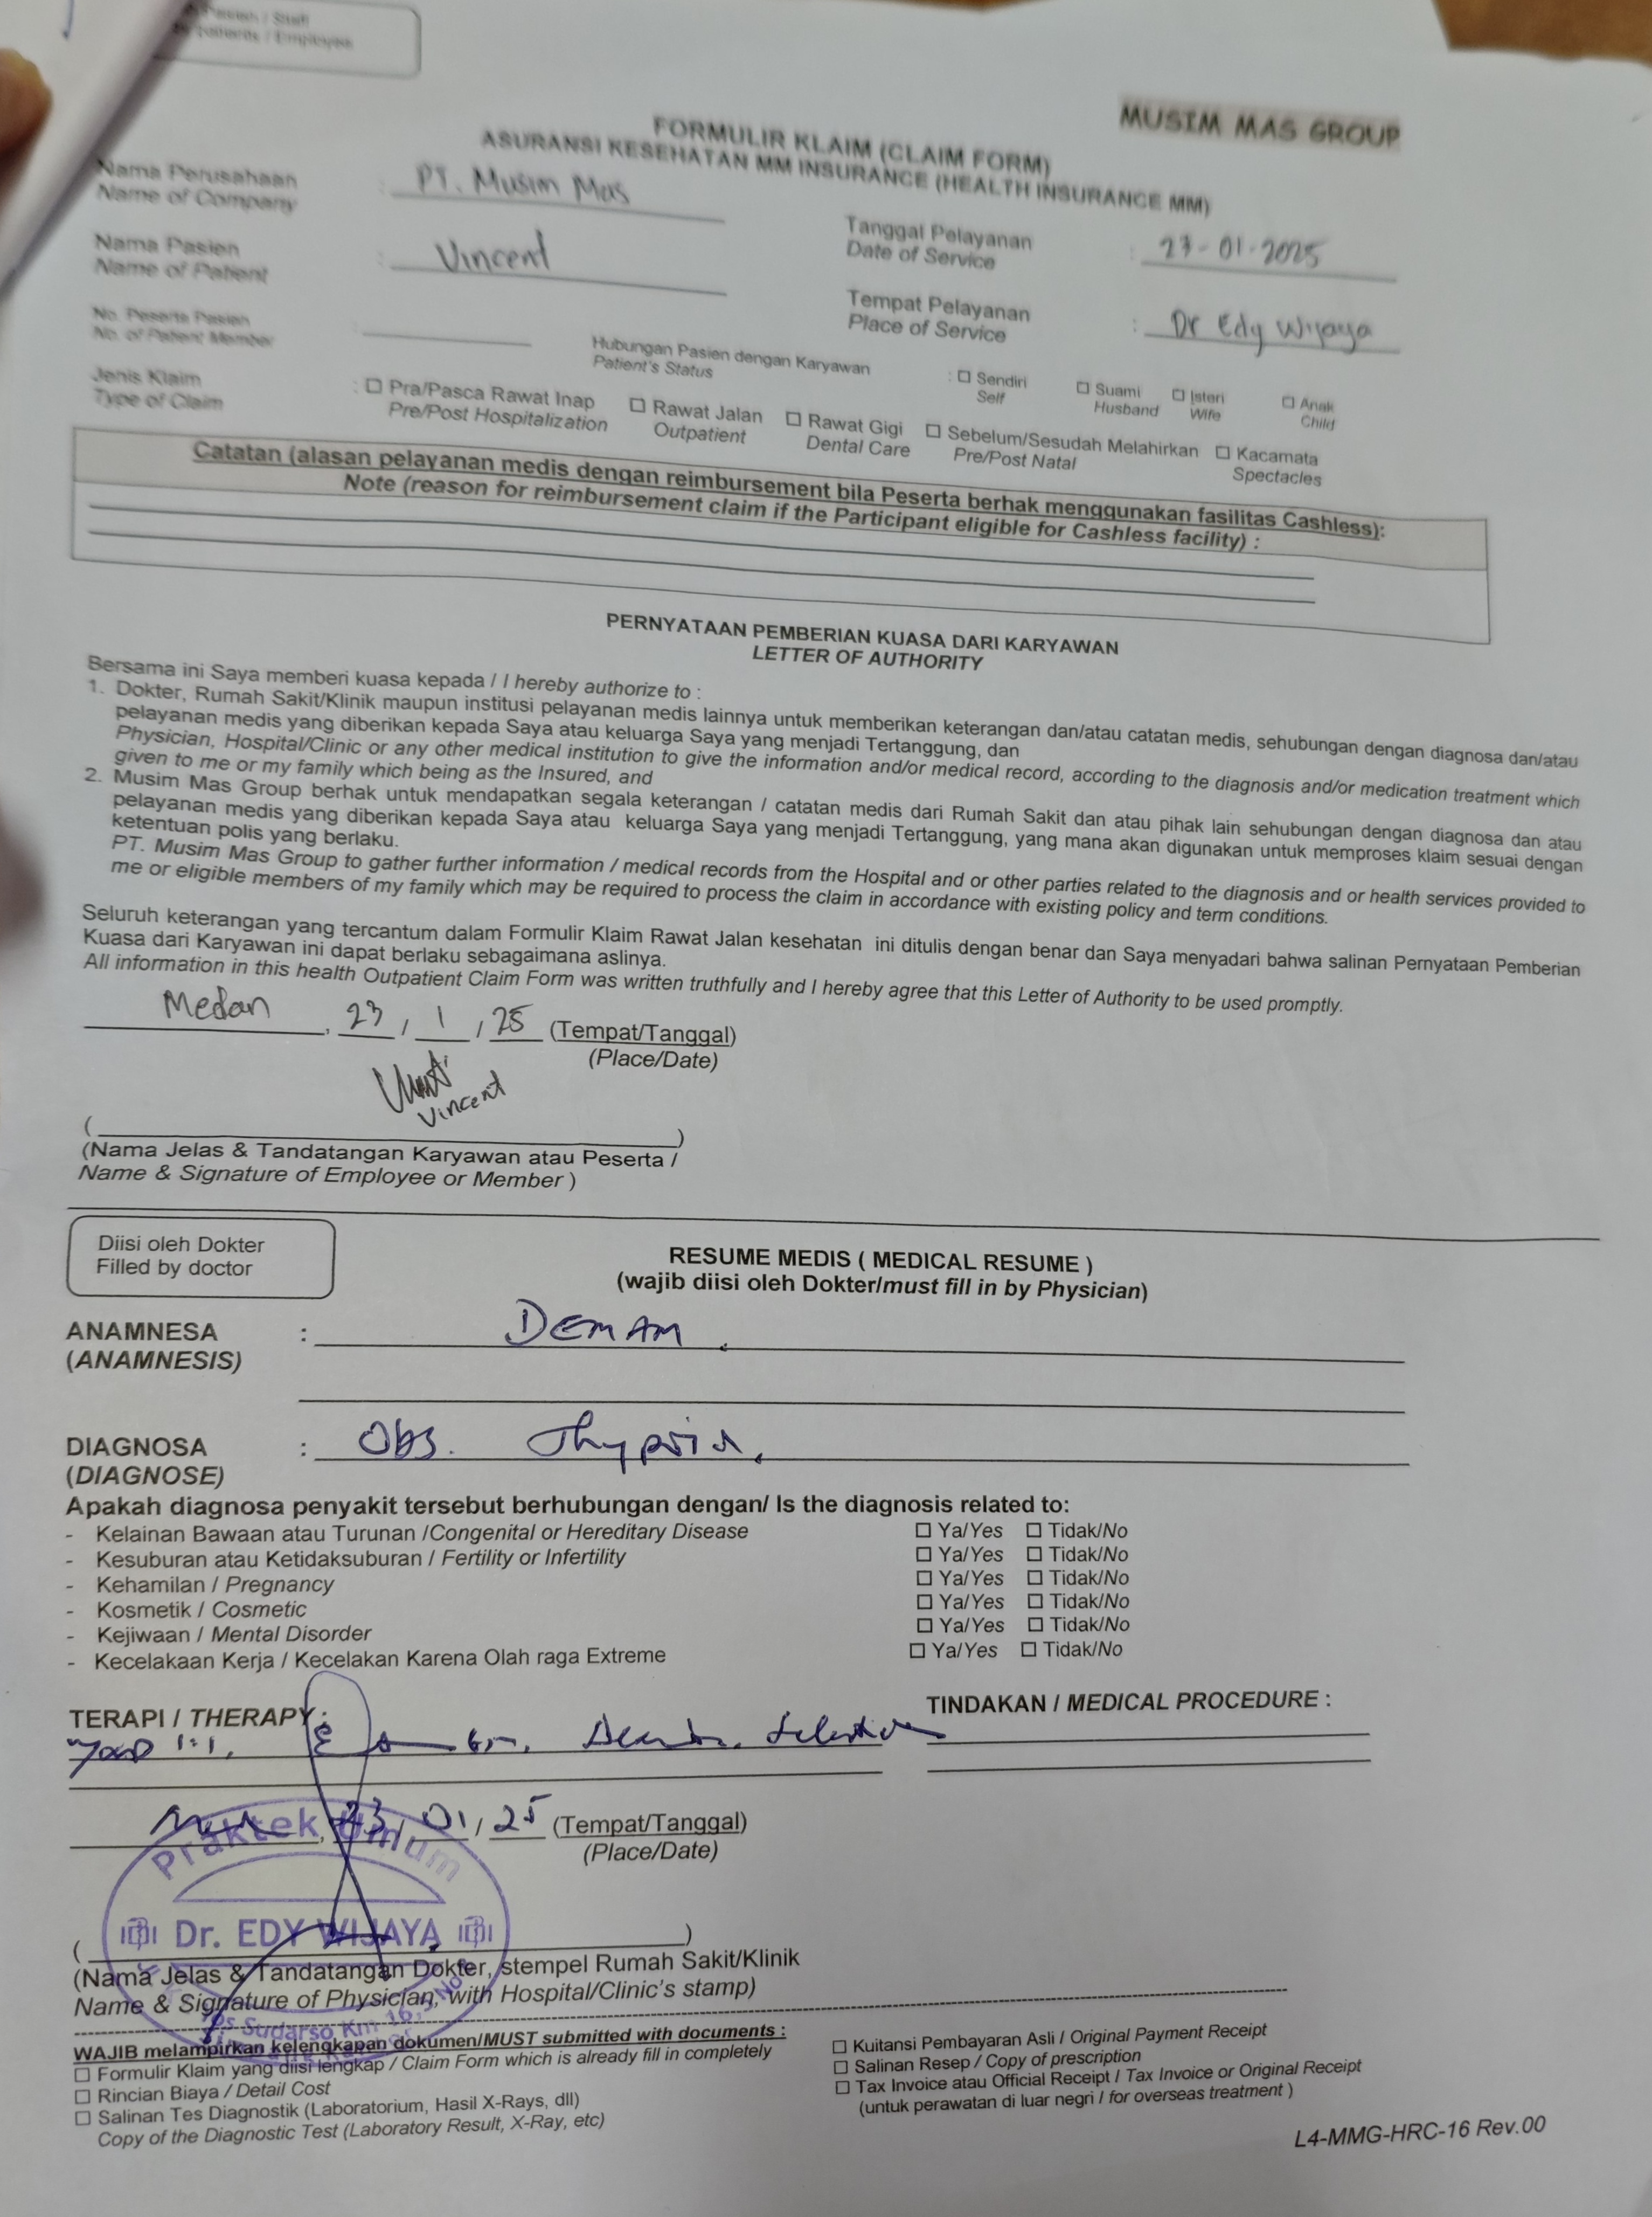 Pasien / Staff
Patients / Employee
MUSIM MAS GROUP
FORMULIR KLAIM (CLAIM FORM)
ASURANSI KESEHATAN MM INSURANCE (HEALTH INSURANCE MM)
Nama Perusahaan : PT. Musim Mas
Name of Company
Tanggal Pelayanan : 23-01-2025
Date of Service
Nama Pasien : Vincent
Name of Patient
Tempat Pelayanan : Dr Edy Wijaya
Place of Service
No. Peserta Pasien :
No. of Patient Member
Hubungan Pasien dengan Karyawan : ☐ Sendiri ☐ Suami ☐ Isteri ☐ Anak
Patient's Status Self Husband Wife Child
Jenis Klaim : ☐ Pra/Pasca Rawat Inap ☐ Rawat Jalan ☐ Rawat Gigi ☐ Sebelum/Sesudah Melahirkan ☐ Kacamata
Type of Claim Pre/Post Hospitalization Outpatient Dental Care Pre/Post Natal Spectacles
Catatan (alasan pelayanan medis dengan reimbursement bila Peserta berhak menggunakan fasilitas Cashless):
Note (reason for reimbursement claim if the Participant eligible for Cashless facility) :
PERNYATAAN PEMBERIAN KUASA DARI KARYAWAN
LETTER OF AUTHORITY
Bersama ini Saya memberi kuasa kepada / I hereby authorize to :
1. Dokter, Rumah Sakit/Klinik maupun institusi pelayanan medis lainnya untuk memberikan keterangan dan/atau catatan medis, sehubungan dengan diagnosa dan/atau
pelayanan medis yang diberikan kepada Saya atau keluarga Saya yang menjadi Tertanggung, dan
Physician, Hospital/Clinic or any other medical institution to give the information and/or medical record, according to the diagnosis and/or medication treatment which
given to me or my family which being as the Insured, and
2. Musim Mas Group berhak untuk mendapatkan segala keterangan / catatan medis dari Rumah Sakit dan atau pihak lain sehubungan dengan diagnosa dan atau
pelayanan medis yang diberikan kepada Saya atau keluarga Saya yang menjadi Tertanggung, yang mana akan digunakan untuk memproses klaim sesuai dengan
ketentuan polis yang berlaku.
PT. Musim Mas Group to gather further information / medical records from the Hospital and or other parties related to the diagnosis and or health services provided to
me or eligible members of my family which may be required to process the claim in accordance with existing policy and term conditions.
Seluruh keterangan yang tercantum dalam Formulir Klaim Rawat Jalan kesehatan ini ditulis dengan benar dan Saya menyadari bahwa salinan Pernyataan Pemberian
Kuasa dari Karyawan ini dapat berlaku sebagaimana aslinya.
All information in this health Outpatient Claim Form was written truthfully and I hereby agree that this Letter of Authority to be used promptly.
Medan, 23 / 1 / 25 (Tempat/Tanggal)
(Place/Date)
Vincent
( )
(Nama Jelas & Tandatangan Karyawan atau Peserta /
Name & Signature of Employee or Member )
Diisi oleh Dokter
Filled by doctor
RESUME MEDIS ( MEDICAL RESUME )
(wajib diisi oleh Dokter/must fill in by Physician)
ANAMNESA : DEMAM.
(ANAMNESIS)
DIAGNOSA : Obs.
(DIAGNOSE)
Apakah diagnosa penyakit tersebut berhubungan dengan/ Is the diagnosis related to:
- Kelainan Bawaan atau Turunan /Congenital or Hereditary Disease ☐ Ya/Yes ☐ Tidak/No
- Kesuburan atau Ketidaksuburan / Fertility or Infertility ☐ Ya/Yes ☐ Tidak/No
- Kehamilan / Pregnancy ☐ Ya/Yes ☐ Tidak/No
- Kosmetik / Cosmetic ☐ Ya/Yes ☐ Tidak/No
- Kejiwaan / Mental Disorder ☐ Ya/Yes ☐ Tidak/No
- Kecelakaan Kerja / Kecelakan Karena Olah raga Extreme ☐ Ya/Yes ☐ Tidak/No
TERAPI / THERAPY :
TINDAKAN / MEDICAL PROCEDURE :
23/ 01/ 25 (Tempat/Tanggal)
(Place/Date)
Praktek Umum
Dr. EDY WIJAYA
( )
(Nama Jelas & Tandatangan Dokter, stempel Rumah Sakit/Klinik
Name & Signature of Physician, with Hospital/Clinic's stamp)
Sudarso Km 16,
WAJIB melampirkan kelengkapan dokumen/MUST submitted with documents :
☐ Formulir Klaim yang diisi lengkap / Claim Form which is already fill in completely
☐ Rincian Biaya / Detail Cost
☐ Salinan Tes Diagnostik (Laboratorium, Hasil X-Rays, dll)
Copy of the Diagnostic Test (Laboratory Result, X-Ray, etc)
☐ Kuitansi Pembayaran Asli / Original Payment Receipt
☐ Salinan Resep / Copy of prescription
☐ Tax Invoice atau Official Receipt / Tax Invoice or Original Receipt
(untuk perawatan di luar negri / for overseas treatment )
L4-MMG-HRC-16 Rev.00